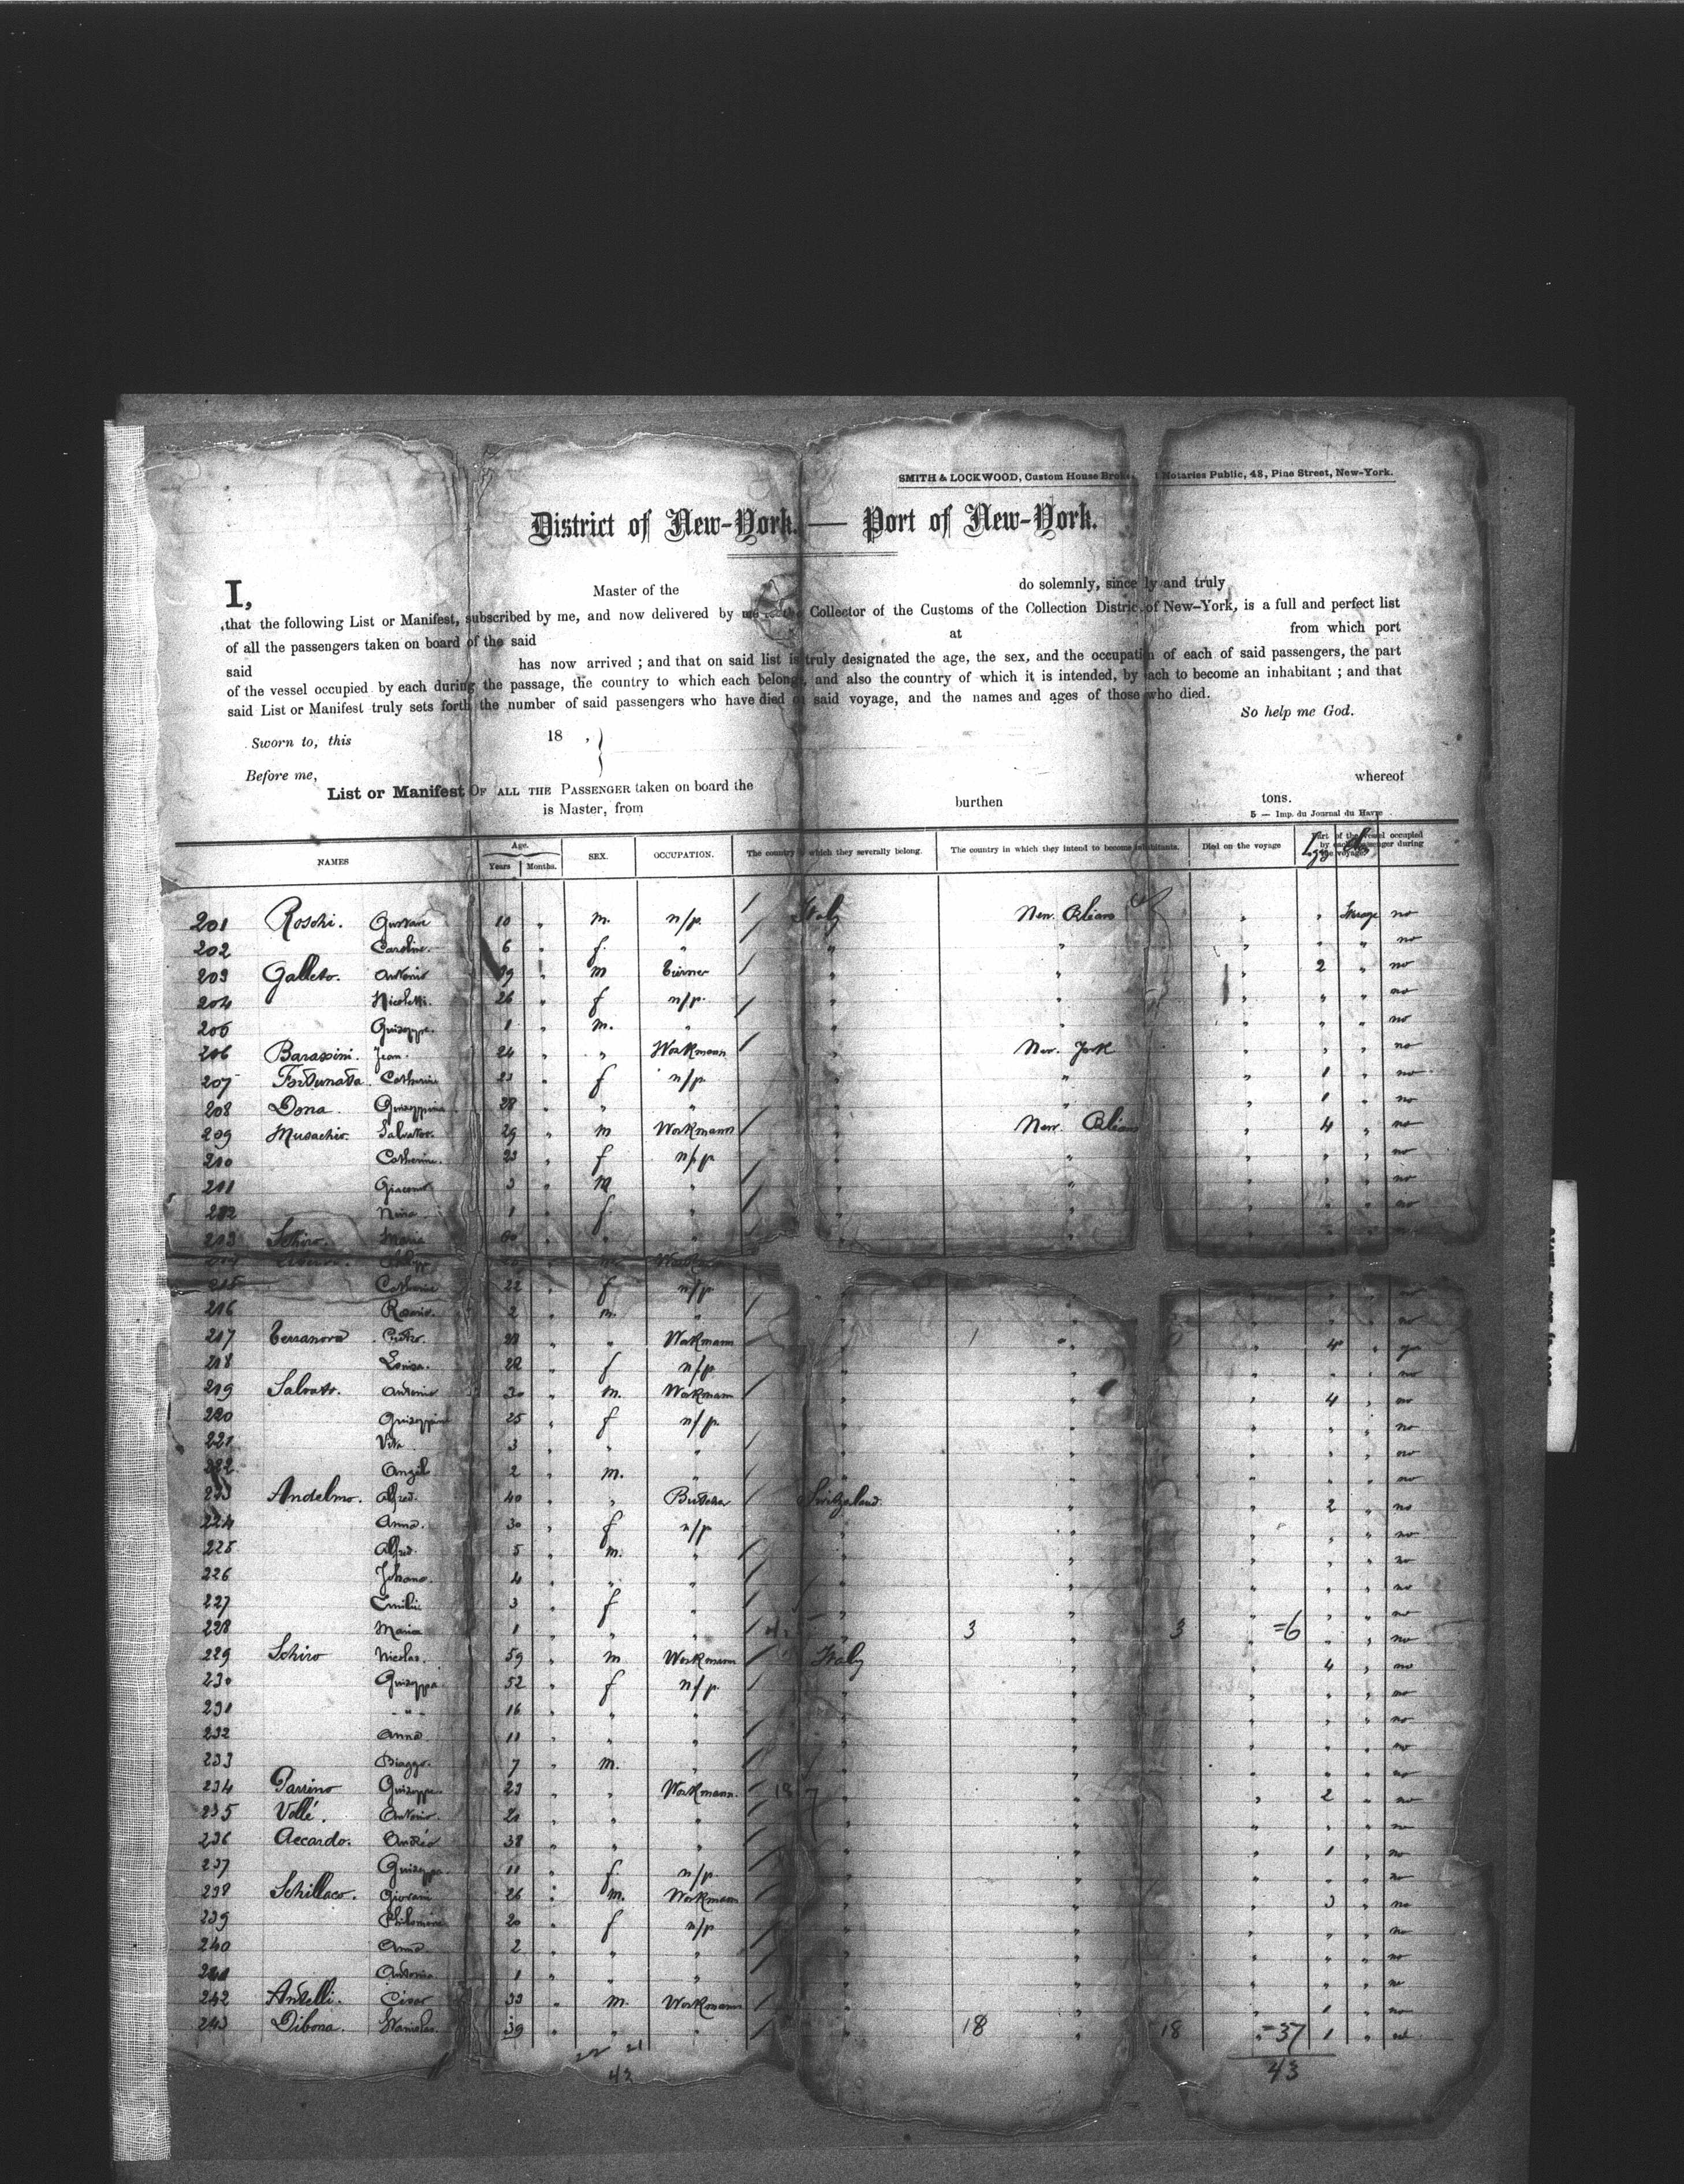 SMITH & LOCKWOOD, Custom House Notaries Public, 48, Pine Street, New-York.
District of New-York. — Port of New-York.
I, Master of the do solemnly, since ly and truly
that the following List or Manifest, subscribed by me, and now delivered by me Collector of the Customs of the Collection District of New-York, is a full and perfect list
of all the passengers taken on board of the said at from which port
said has now arrived ; and that on said list is truly designated the age, the sex, and the occupation of each of said passengers, the part
of the vessel occupied by each during the passage, the country to which each belongs, and also the country of which it is intended, by each to become an inhabitant ; and that
said List or Manifest truly sets forth the number of said passengers who have died on said voyage, and the names and ages of those who died.
So help me God.
Sworn to, this 18 , }
Before me, whereof
List or Manifest OF ALL THE PASSENGER taken on board the
is Master, from burthen tons.
5 — Imp. du Journal du Havre
NAMES Age. Years Months. SEX. OCCUPATION. The country to which they severally belong. The country in which they intend to become inhabitants. Died on the voyage Part of the vessel occupied by each passenger during the voyage
201 Roschi. Gustave 10 " m. n/p. Italy New. Orléans " " no
202 Caroline. 6 " f. " " " " " " no
203 Galleto. Antonio " m Turner " " " 2 " no
204 Nicoletti. 26 " f n/p. " " " " " no
205 Guiseppe. 1 " m. " " " " " " no
206 Barassini. Jean. 24 " " Workmann " New. York " " " no
207 Fortunata. Catherine 23 " f n/p. " " " 1 " no
208 Dona. Guiseppina 28 " " " " " " 1 " no
209 Musachio. Salvator. 29 " m Workmann " New. Orléans " 4 " no
210 Catherine. 23 " f n/p. " " " " " no
211 Giacomo 3 " m " " " " " " no
212 Nina 1 " f " " " " " " no
213 Schiro. Maria "
215 Catherine 22 " f n/p. " " " " " no
216 Rosario. 2 " m. " " " " " " no
217 Terranova Workmann 1 " 4
218 Louisa. 22 " f n/p. " " " " " no
219 Salvato. Antonio 30 " m. Workmann " " " 4 " no
220 Guiseppina 25 " f n/p. " " " " " no
221 Vita 3 " " " " " " " " no
222 Angel 2 " m. " " " " " " no
223 Andelmo. Alfred. 40 " " Butcher Switzerland. " " 2 " no
224 Anna. 30 " f n/p. " " " " " no
225 Alfred. 5 " m. " " " " " " no
226 Johann. 4 " " " " " " " " no
227 Emilie 3 " f " " " " " " no
228 Maria 1 " " " " 3 " 3 " =6 " " no
229 Schiro Nicolas. 59 " m Workmann Italy " " 4 " no
230 Guiseppa 52 " f n/p. " " " " " no
231 - " - 16 " " " " " " " " no
232 Anna 11 " " " " " " " " no
233 Biaggo. 7 " m. " " " " " " no
234 Parrino Guiseppe. 23 " " Workmann. 18 " " 2 " no
235 Vellé. Antonio. 21 " " " " " " " " no
236 Accardo. Andréa 38 " " " " " " 1 " no
237 Guiseppa. 11 " f. n/p. " " " " " no
238 Schillaco. Giovani 26 " m. Workmann " " " 3 " no
239 Philomène 20 " f n/p. " " " " " no
240 Anna 2 " " " " " " " " no
241 Antonia 1 " " " " " " " " no
242 Antelli. César 33 " m. Workmann " " " 1 " no
243 Dibona. Stanislas. 39 " " " " 18 " 18 " =37 1 "
22 21
43 43